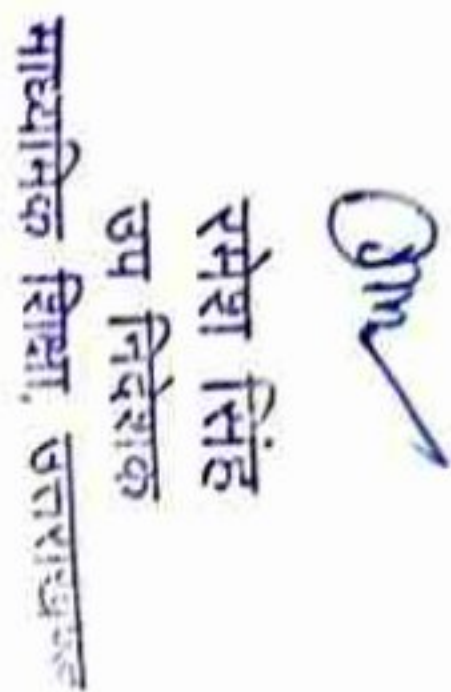 रमेश सिंह
उप निदेशक
माध्यामिक शिक्षा, उत्तराखण्ड